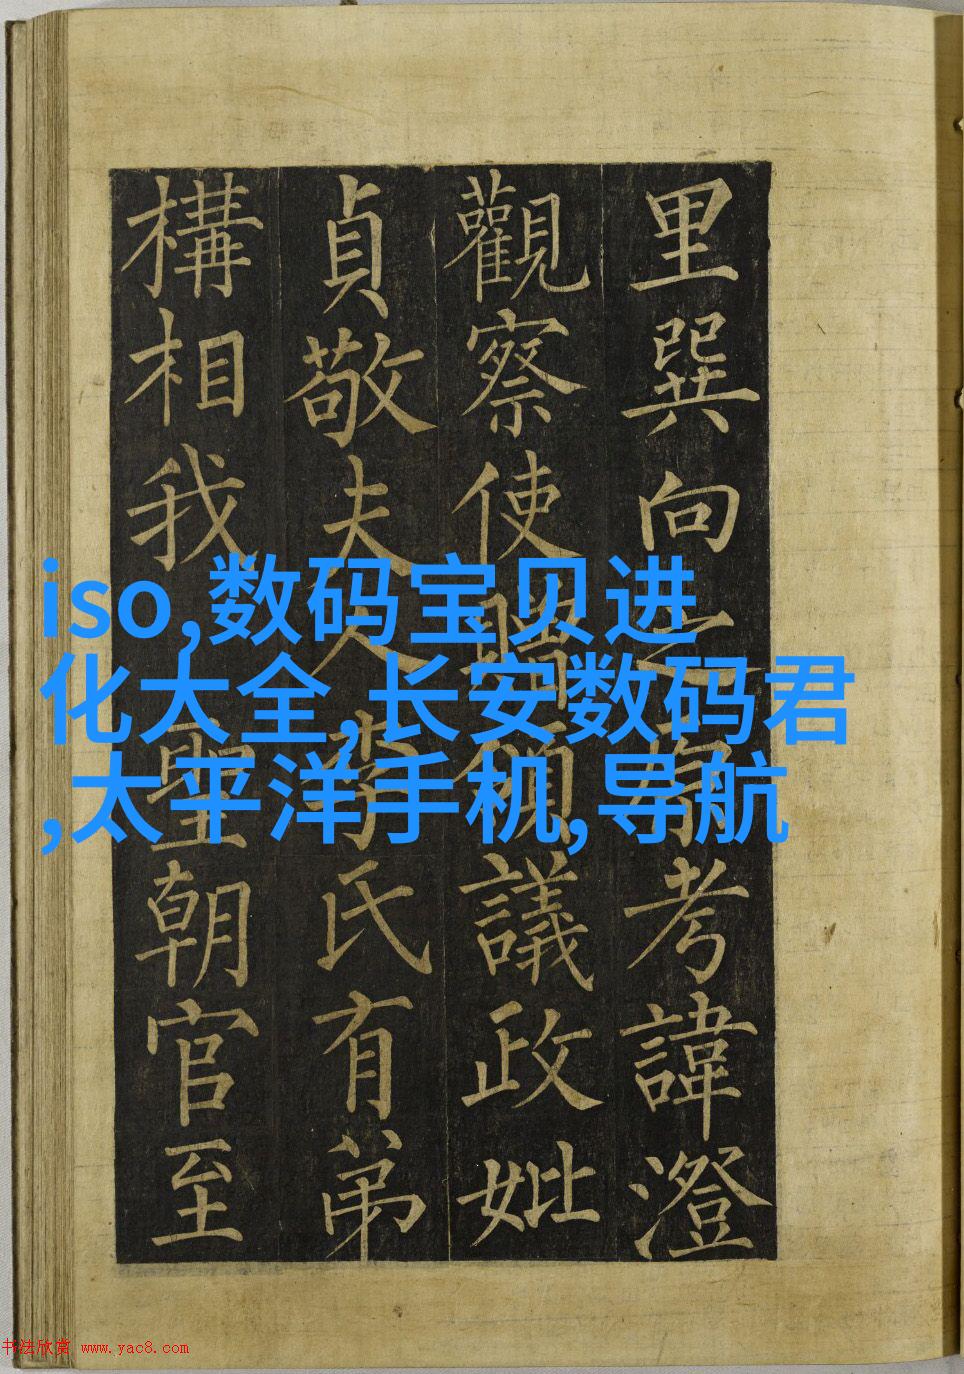 里巽向之考諱澄
觀察使贈領議政妣
貞敬夫人氏有弟
構相我聖朝官至
iso,数码宝贝进
化大全,长安数码君
,太平洋手机,导航
书法欣赏 www.yac8.com